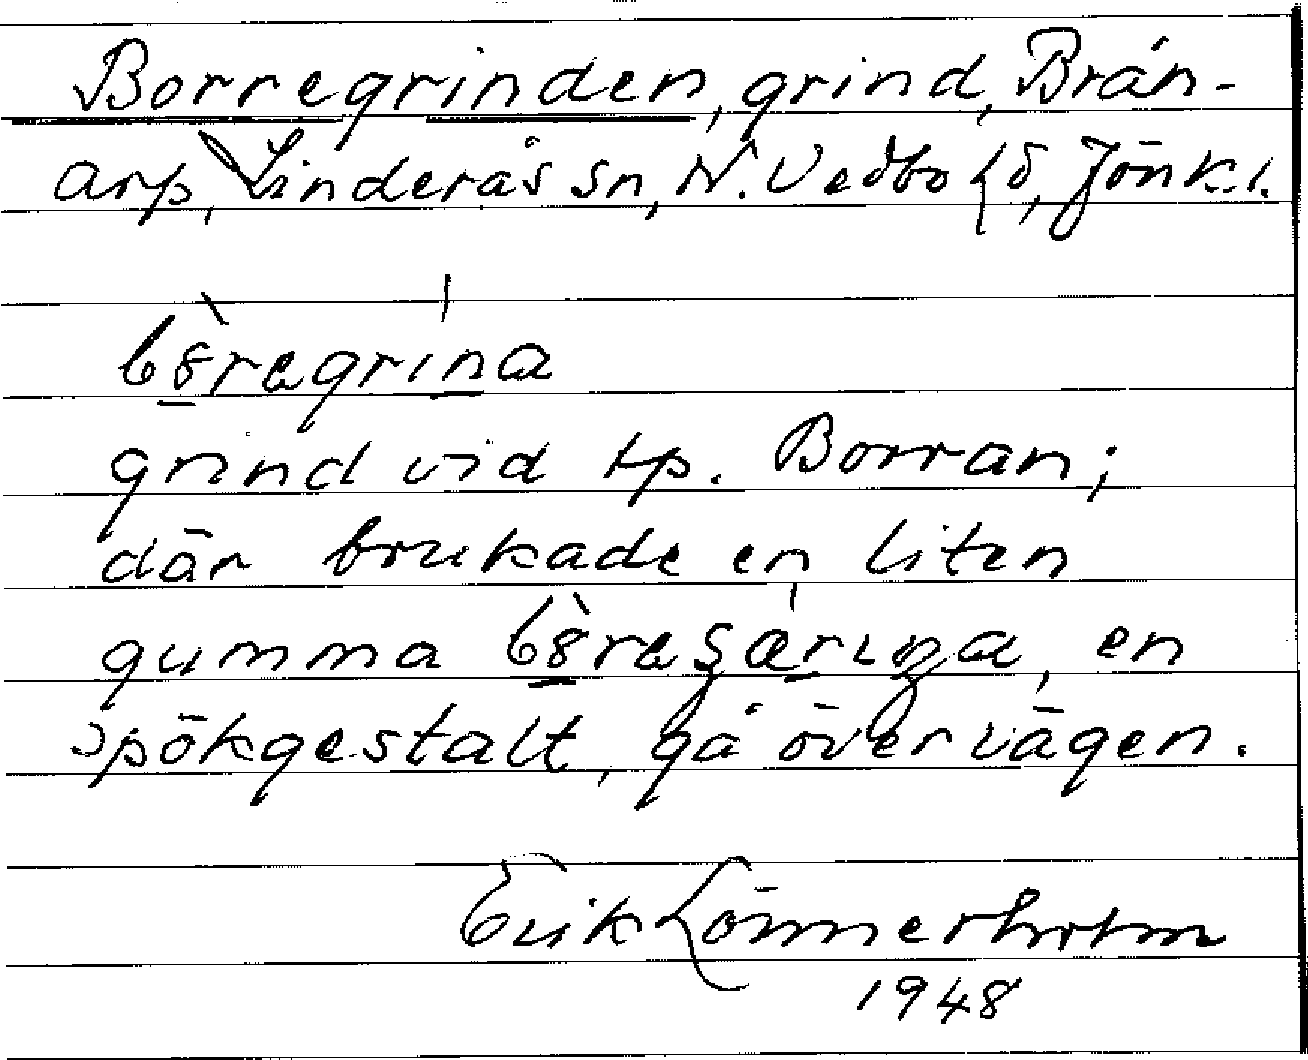 Borregrinden, grind, Brán-
arp, Linderås sn, N. Vedbo hd, Jönk. l.
bòregrina
grind vid tp. Borran;
där brukade en liten
gumma en
spökgestalt, gå över vägen.
Erik Lönnerholm
1948